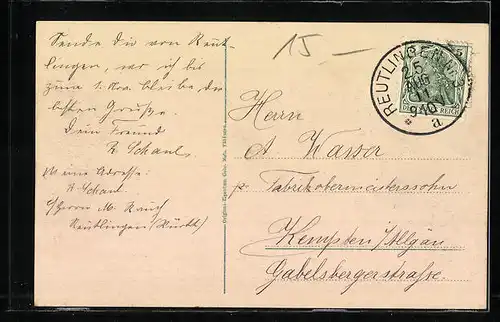 Sende dir von Reut-
lingen, wo ich bis
zum 1. Nov. bleibe die
besten Grüße.
Dein Freund
R. Schaul
Meine Adresse:
R. Schaul
b/Herrn M. Rauch
Reutlingen
15 –
REUTLINGEN
25
AUG
11
9-10
* a
REICH
Herrn
A Wasser
p. Fabrikobermeisterssohn
Kempten i/Allgäu
Gabelsbergerstraße.